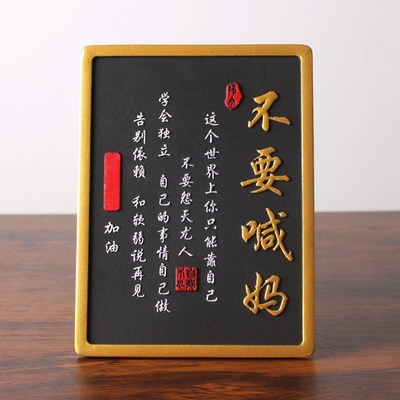 不要喊妈
这个世界上你只能靠自己
不要怨天尤人
学会独立 自己的事情自己做
告别依赖 和软弱说再见
加油